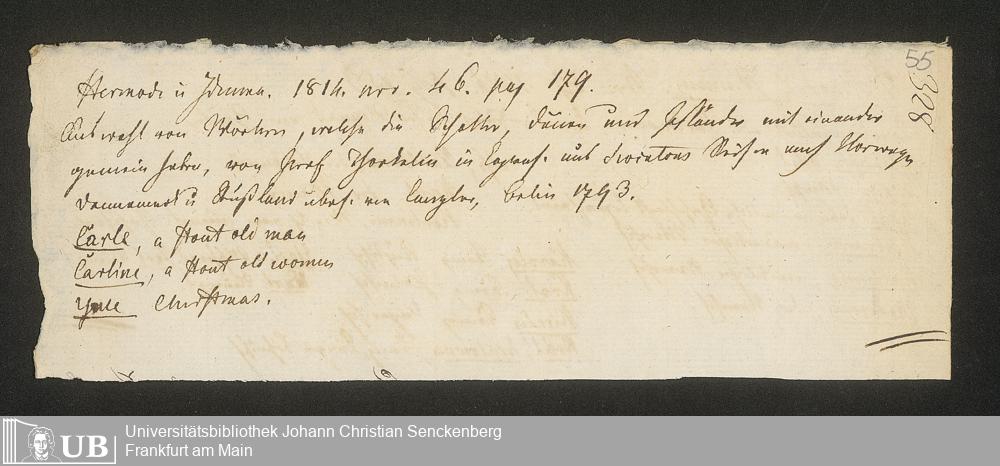 55
328
Hermode u Idunna. 1814. nro. 46. pag 179.
Auswahl von Wörtern, welche die Schotten, Dänen und Isländer mit einander
gemein haben, von Prof Thorkelin in aus Swintons Reisen nach Norwegen
Dännemark u Rußland übers. von Canzler, Berlin 1793.
Carle, a stout old man
Carline, a stout old women
Yule Christmas.
UB
Universitätsbibliothek Johann Christian Senckenberg
Frankfurt am Main